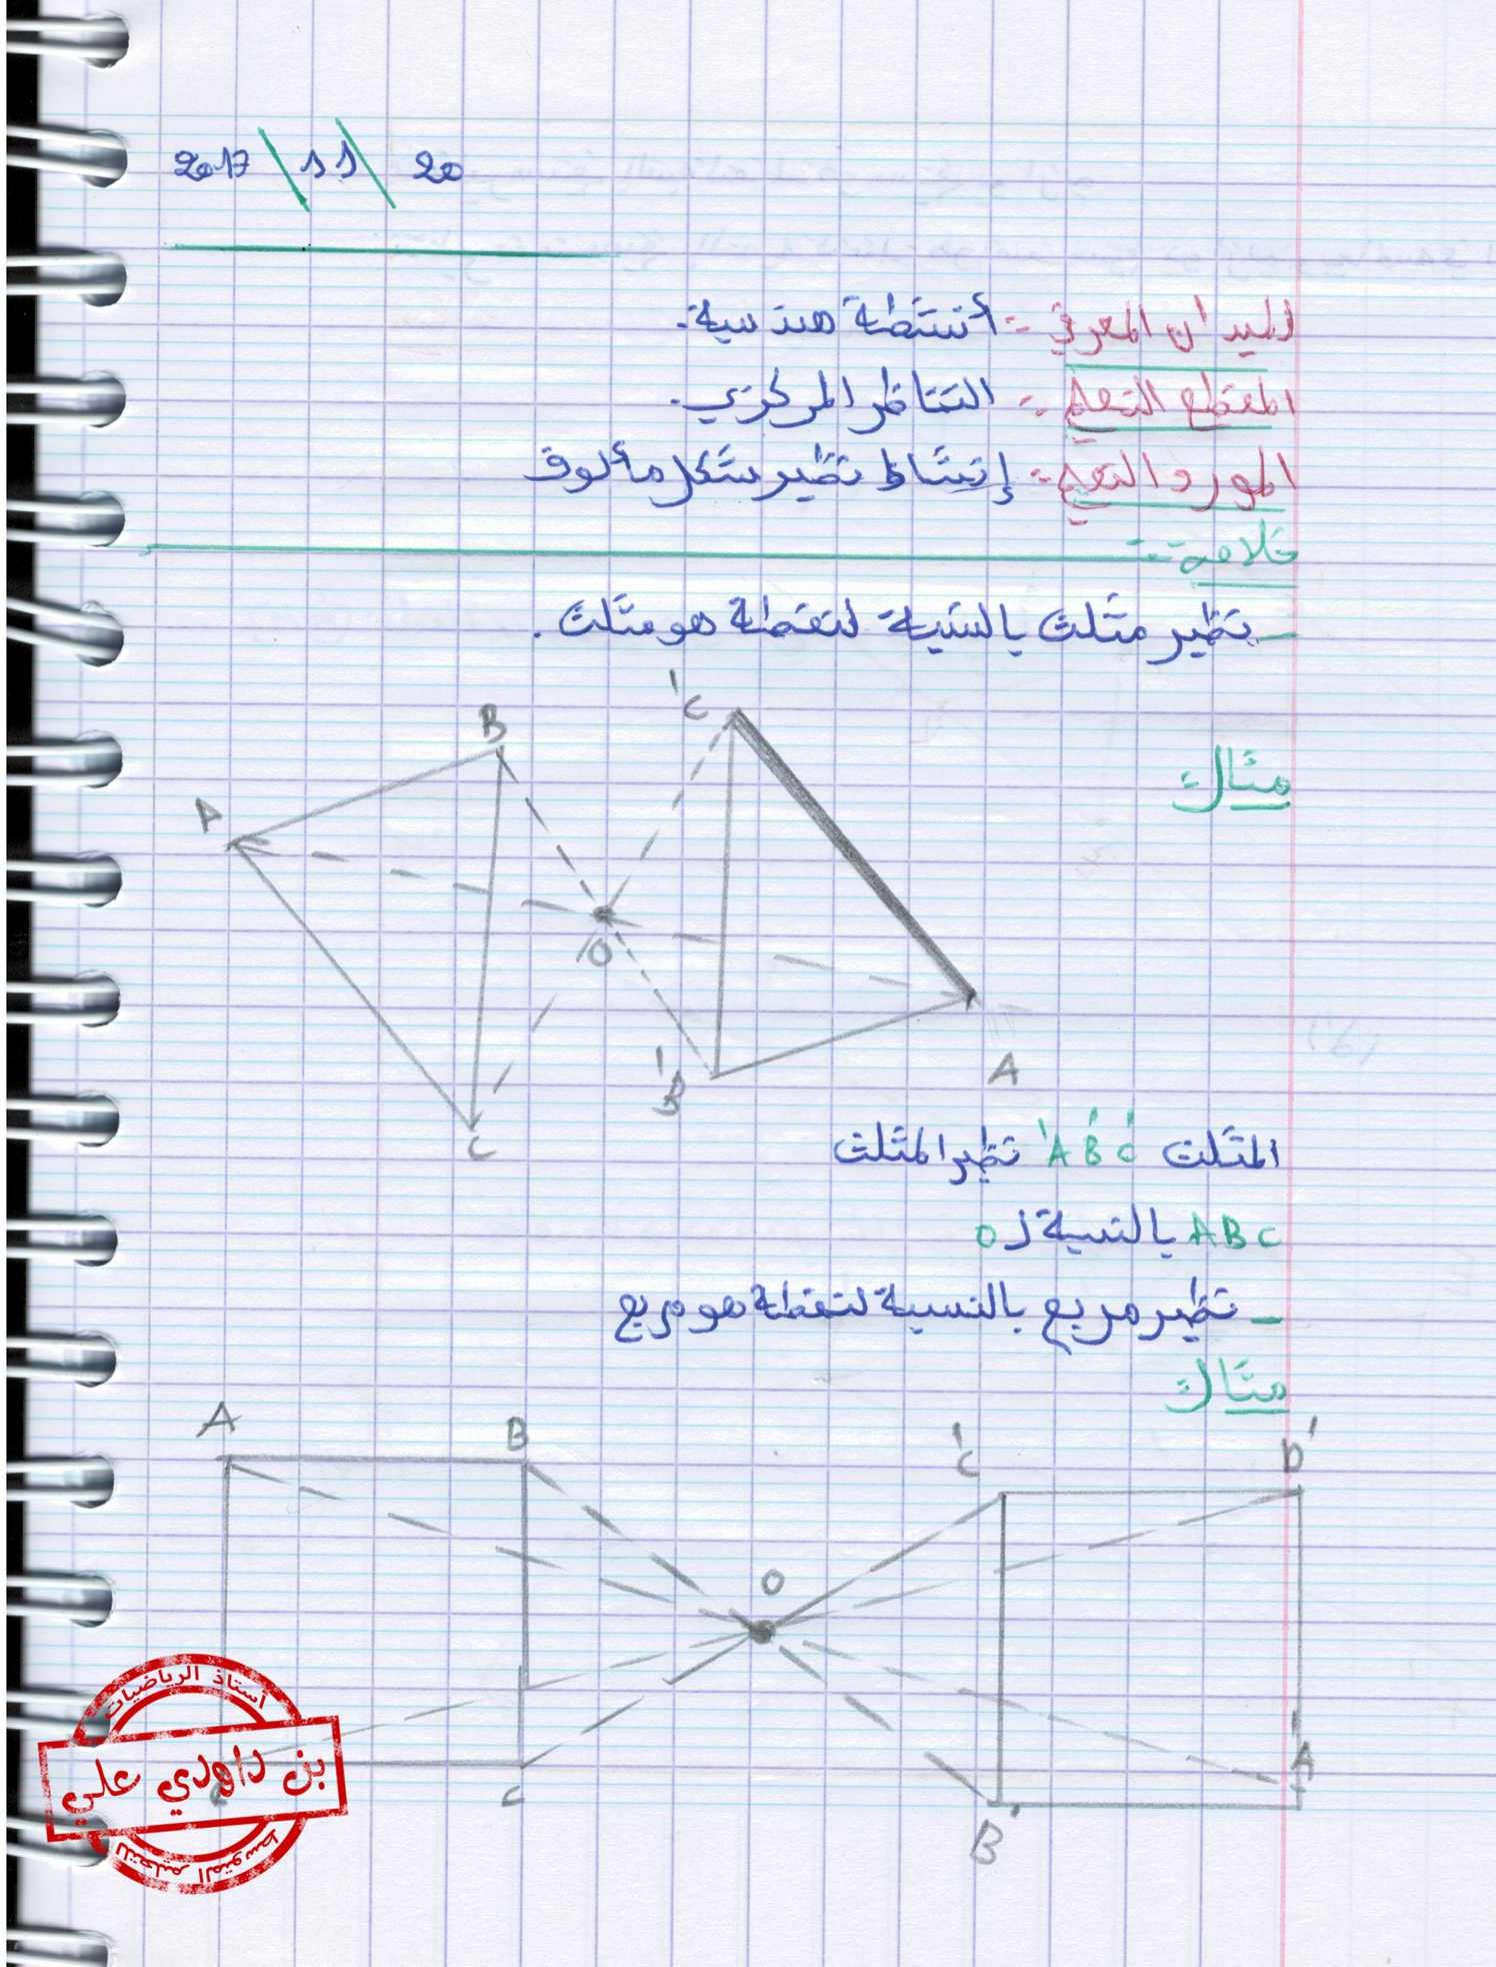 20 / 11 / 2017
الميدان المعرفي :- أنشطة هندسية.
المقطع التعلمي :- التناظر المركزي.
المورد التعلمي :- إنشاء نظير شكل مألوف
خلاصة :-
- نظير مثلث بالنسبة لنقطة هو مثلث .
مثال :
B
'C
A
O
'B
A
C
المثلث 'A'B'C نظير المثلث
ABC بالنسبة لـ O
- نظير مربع بالنسبة لنقطة هو مربع
مثال :
A
B
'C
D'
O
'A
C
B'
أستاذ الرياضيات
بن داهدي علي
للتعليم المتوسط